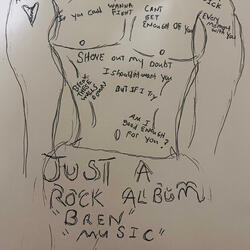 So you could WANNA FIGHT
CANT GET ENOUGH OF YOU
SICK
EVERY MOMENT WITH YOU
SHOVE OUT MY DOUBT
I shouldnt want you
BUT IF I TRY
BREAK THESE WALLS DOWN
AM I GOOD ENOUGH FOR YOU?
JUST A
ROCK ALBUM
"BREN"
"MUSIC"